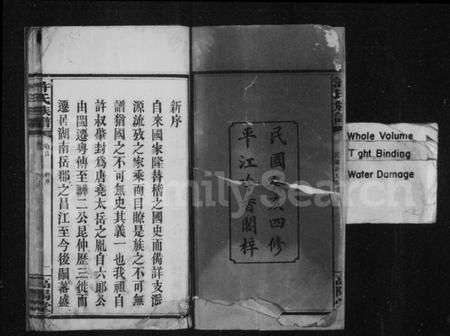 民國 四修
平江 閣梓
新序
自來國家隆替稽之國史而備詳支派
源流攷之家乘而目瞭是族之不可無
譜猶國之不可無史其義一也我祖自
許叔肇封為唐堯太岳之胤自六郎公
由閩遷粵傳至 二公昆仲歷三徙而
遷居湖南岳郡之昌江至今後嗣蕃盛
許氏族譜
Whole Volume
Tight Binding
Water Damage
FamilySearch